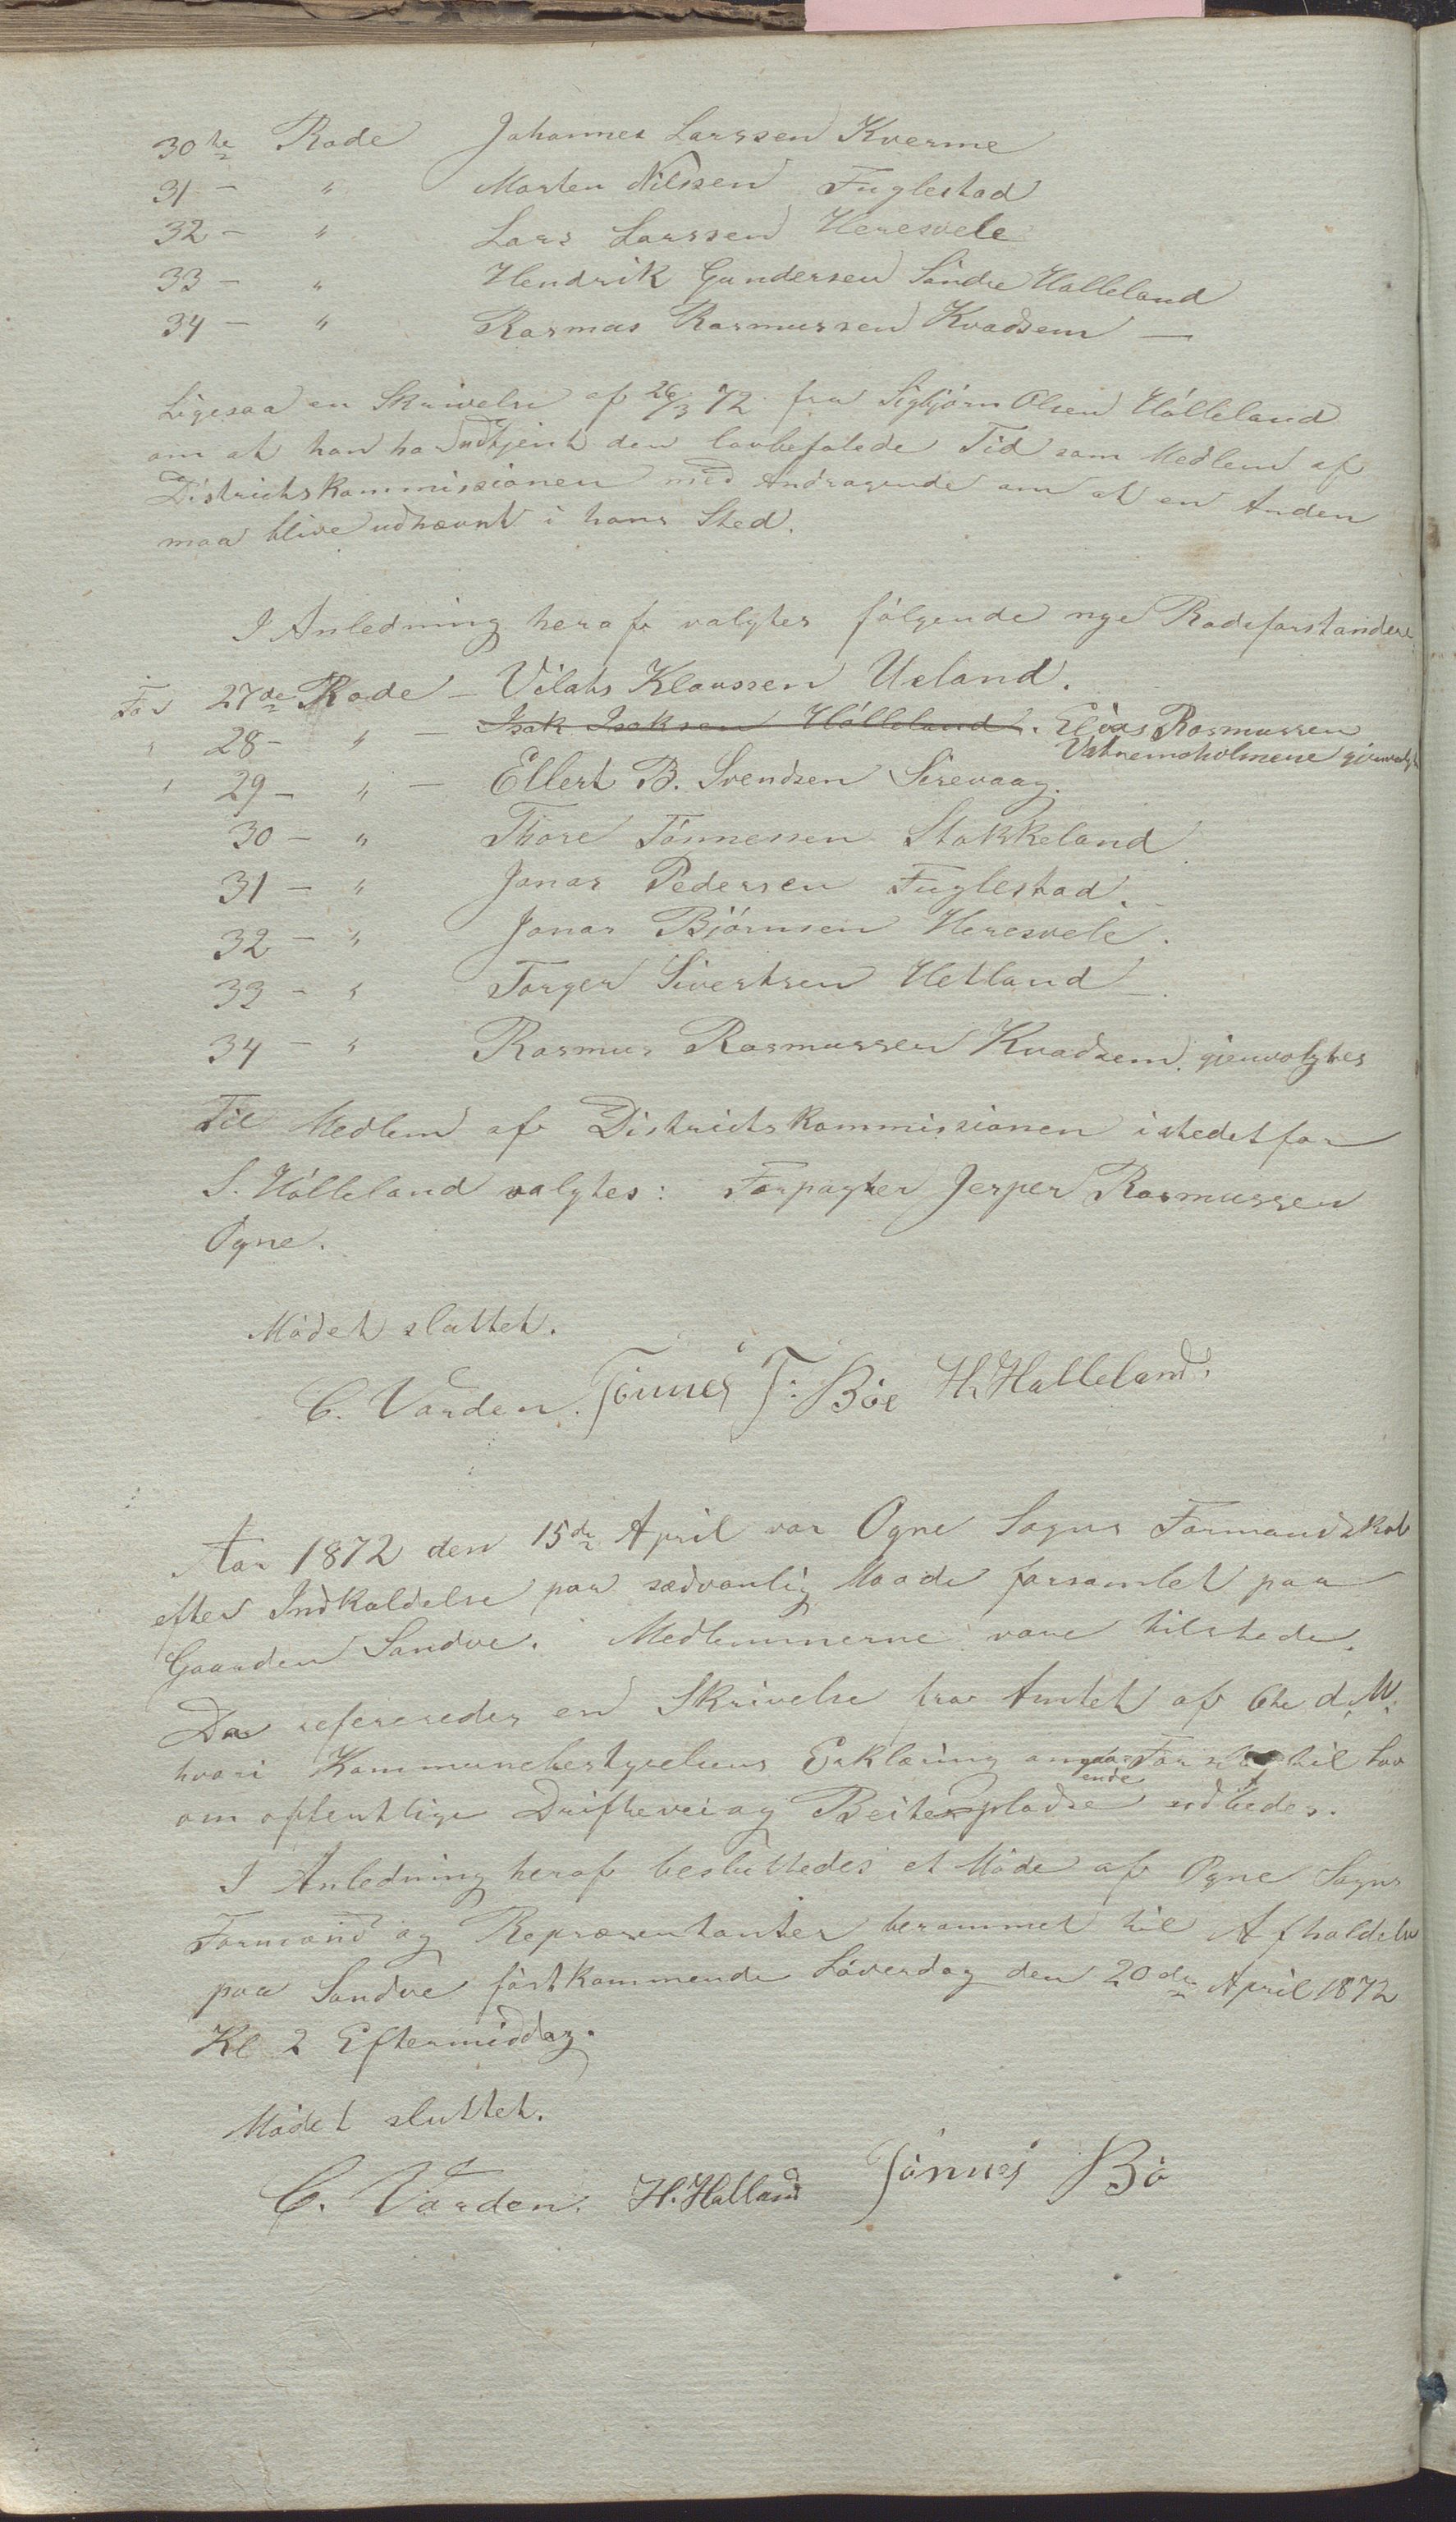 30te Rode Johannes Larssen Kverme
31 - " Morten Nilssen Fuglestad
32 - " Lars Larssen Heresvele
33 - " Hendrik Gundersen Söndre Halleland
34 - " Rasmus Rasmussen Kvadsem —
Ligesaa en Skrivelse af 26/3 72 fra Sigbjörn Olsen Hölleland
om at han har udtjent den lovbefalede Tid som Medlem af
Districtskommissionen med Andragende om at en Anden
maa blive udnævnt i hans Sted.
I Anledning heraf valgtes fölgende nye Rodeforstandere:
For 27de Rode - Vilats Klaussen Ueland.
" 28 - " - Isak Isaksen Hölleland. Elias Rasmussen
Vatnemoholmene gjenvalgt
" 29 - " - Ellert B. Svendsen Sirevaag.
30 - " Thore Tönnessen Stokkeland
31 - " Jonas Pedersen Fuglestad.
32 - " Jonas Björnsen Heresvele.
33 - " Torger Sivertsen Hetland
34 - " Rasmus Rasmussen Kvadsem. gjenvalgtes
Til Medlem af Districtskommissionen istedetfor
S. Hölleland valgtes: Forpagter Jesper Rasmussen
Ogne.
Mödet sluttet.
C. Varden. Tönnes T. Böe H. Halleland.
Aar 1872 den 15de April var Ogne Sogns Formandskab
efter Indkaldelse paa sædvanlig Maade forsamlet paa
Gaarden Sandve. Medlemmerne vare tilstede.
Da refereredes en Skrivelse fra Amtet af 6te d. M.
hvori Kommunebestyrelsens Erklæring angaa= Forslag til Lov
ende
om offentlige Drifteveiog Beitespladse udbedes.
I Anledning heraf besluttedes et Möde af Ogne Sogns
Formænd og Repræsentanter berammet til Afholdelse
paa Sandve förstkommende Löverdag den 20de April 1872
Kl 2 Eftermiddag.
Mödet sluttet.
C. Varden. H. Halland Tönnes Bö